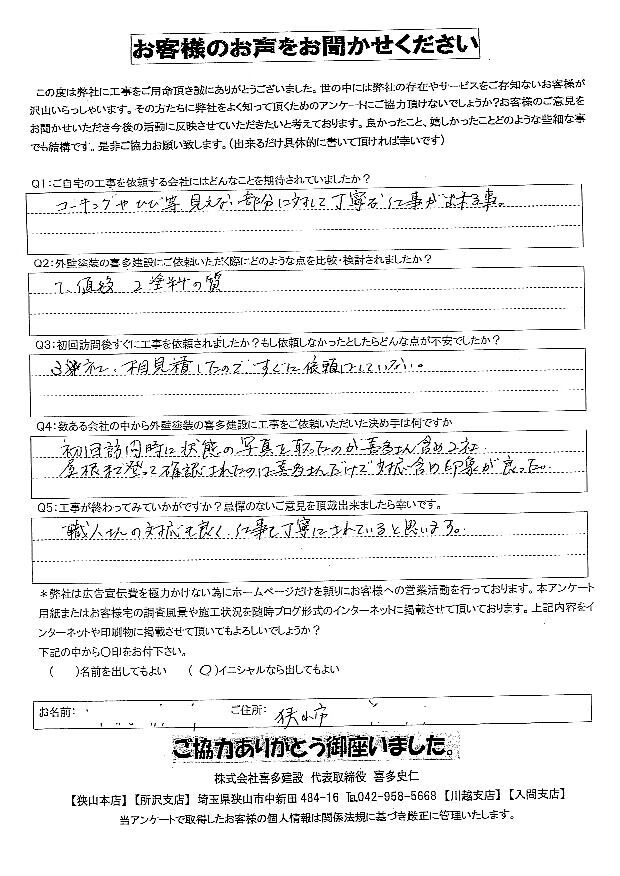 お客様のお声をお聞かせください
この度は弊社に工事をご用命頂き誠にありがとうございました。世の中には弊社の存在やサービスをご存知ないお客様が
沢山いらっしゃいます。その方たちに弊社をよく知って頂くためのアンケートにご協力頂けないでしょうか?お客様のご意見を
お聞かせいただき今後の活動に反映させていただきたいと考えております。良かったこと、嬉しかったことどのような些細な事
でも結構です。是非ご協力お願い致します。(出来るだけ具体的に書いて頂ければ幸いです)
Q1:ご自宅の工事を依頼する会社にはどんなことを期待されていましたか?
コーキングやひび等見えない部分に対して丁寧な仕事が出来る事。
Q2:外壁塗装の喜多建設にご依頼いただく際にどのような点を比較・検討されましたか?
1、価格 2 塗料の質
Q3:初回訪問後すぐに工事を依頼されましたか?もし依頼しなかったとしたらどんな点が不安でしたか?
3社、相見積したのですぐに依頼はしていない。
Q4:数ある会社の中から外壁塗装の喜多建設に工事をご依頼いただいた決め手は何ですか
初回訪問時に状態の写真を取ったのが喜多さん含め2社
屋根まで登って確認されたのは喜多さんだけで対応含め印象が良った。
Q5:工事が終わってみていかがですか?忌憚のないご意見を頂戴出来ましたら幸いです。
職人さんの対応も良く、仕事も丁寧にされていると思います。
*弊社は広告宣伝費を極力かけない為にホームページだけを頼りにお客様への営業活動を行っております。本アンケート
用紙またはお客様宅の調査風景や施工状況を随時ブログ形式のインターネットに掲載させて頂いております。上記内容をイ
ンターネットや印刷物に掲載させて頂いてもよろしいでしょうか?
下記の中から〇印をお付下さい。
( )名前を出してもよい (〇)イニシャルなら出してもよい
お名前: ご住所: 狭山市
ご協力ありがとう御座いました。
株式会社喜多建設 代表取締役 喜多史仁
【狭山本店】【所沢支店】 埼玉県狭山市中新田484-16 ℡042-958-5668 【川越支店】【入間支店】
当アンケートで取得したお客様の個人情報は関係法規に基づき厳正に管理いたします。